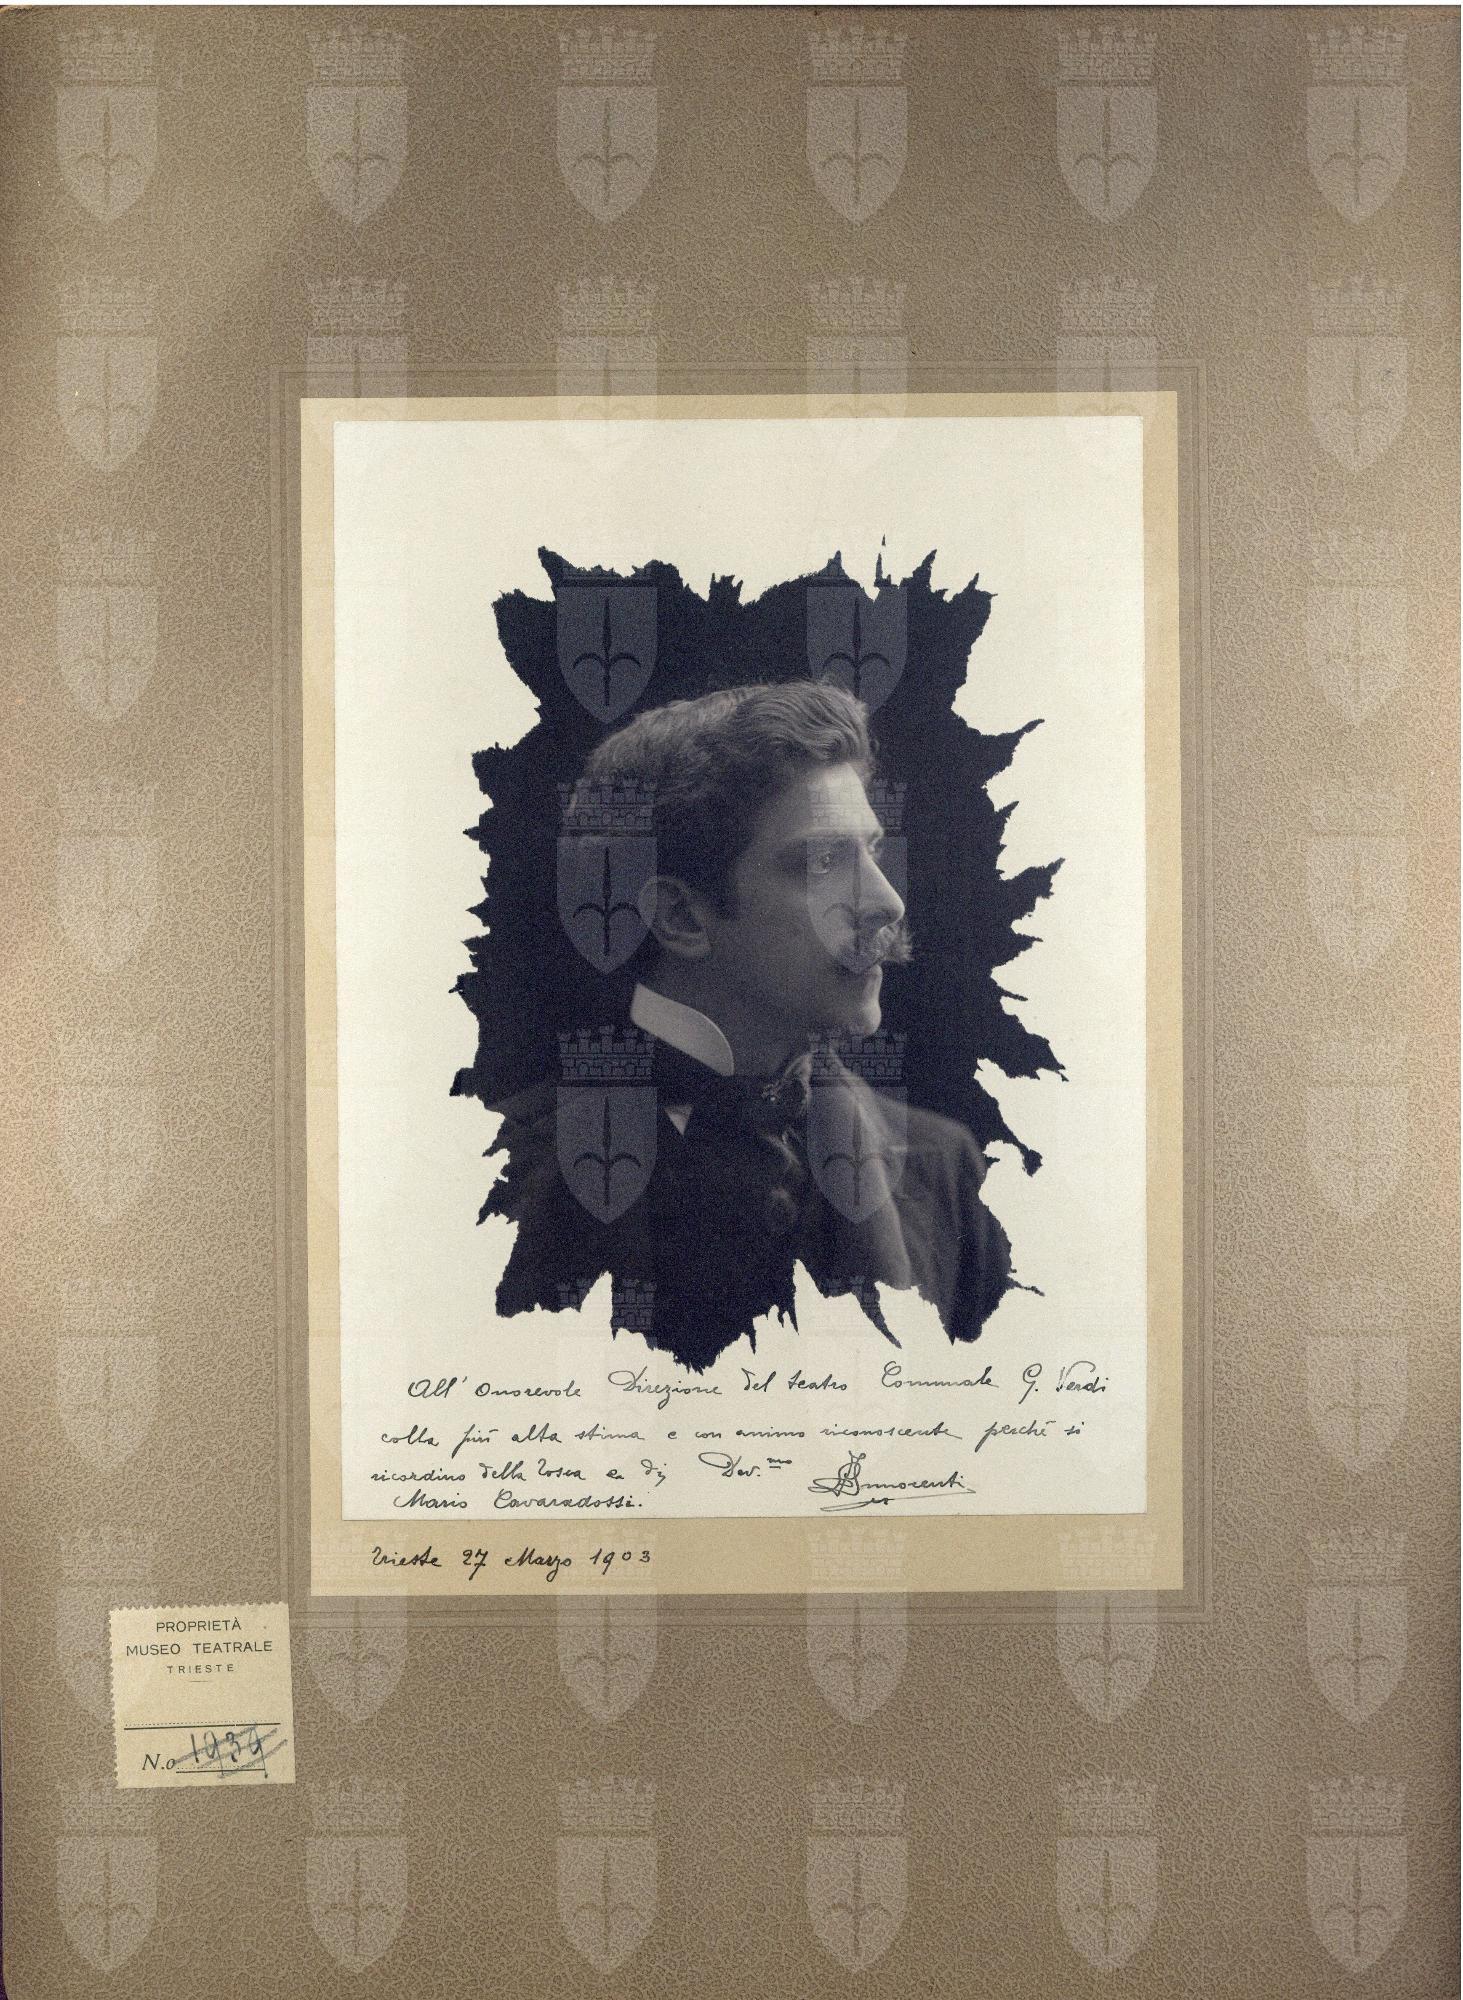 All' Onorevole Direzione del teatro Comunale G. Verdi
colla più alta stima e con animo riconoscente perchè si
ricordino della Tosca e di Dev.mo Innocenti
Mario Cavaradossi.
Trieste 27 Marzo 1903
PROPRIETÀ
MUSEO TEATRALE
TRIESTE
N.o 1939